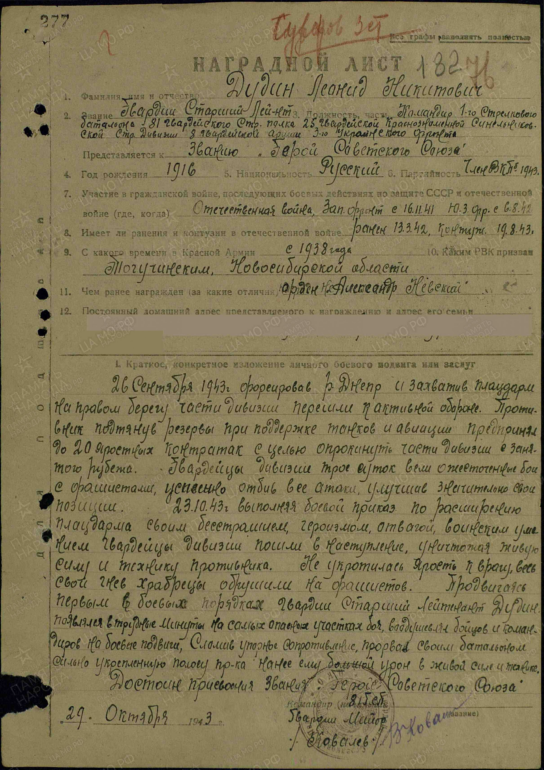 277
Суворов 3 ст
Все графы заполнять полностью
НАГРАДНОЙ ЛИСТ 132 76
1. Фамилия, имя и отчество Дудин Леонид Никитович
2. Звание Гвардии Старший Лейт. 3. Должность, часть Командир 1-го Стрелкового
батальона 81 гвардейского Стр. полка 25 гвардейской Краснознаменной Синельников-
ской Стр. Дивизии 8 гвардейской армии 3-го Украинского фронта
Представляется к Званию „Герой Советского Союза"
4. Год рождения 1916 5. Национальность Русский 6. Партийность Член ВКПб 1943.
7. Участие в гражданской войне, последующих боевых действиях по защите СССР и отечественной
войне (где, когда) Отечественная война, Зап. фронт с 16.11.41 Ю.З. фр. с 6.8.42
8. Имеет ли ранения и контузии в отечественной войне ранен 13.3.42, Контуж. 19.8.43г.
9. С какого времени в Красной Армии с 1938 года 10. Каким РВК призван
Тогучинским, Новосибирской области
11. Чем ранее награжден (за какие отличия) орден „Александр Невский"
12. Постоянный домашний адрес представляемого к награждению и адрес его семьи
I. Краткое, конкретное изложение личного боевого подвига или заслуг
26 Сентября 1943г форсировав р. Днепр и захватив плацдарм
на правом берегу части дивизии перешли к активной обороне. Проти-
вник подтянув резервы при поддержке танков и авиации предпринял
до 20 яростных контратак с целью опрокинуть части дивизии с заня-
того рубежа. Гвардейцы дивизии трое суток вели ожесточенные бои
с фашистами, успешно отбив все атаки, улучшив значительно свои
позиции. 23.10.43г выполняя боевой приказ по расширению
плацдарма своим бесстрашием, героизмом, отвагой, воинским уме-
нием гвардейцы дивизии пошли в наступление, уничтожая живую
силу и технику противника. Не укротилась ярость к врагу, весь
свой гнев храбрецы обрушили на фашистов. Продвигаясь
первым в боевых порядках гвардии Старший Лейтенант Дудин
появлялся в трудные минуты на самых опасных участках боя, воодушевлял бойцов и коман-
диров на боевые подвиги, Сломив упорное сопротивление, прорвал своим батальоном
сильно укрепленную полосу пр-ка нанес ему большой урон в живой силе и технике.
Достоин присвоения Звания „Герой Советского Союза"
Командир 81 гв сп
29. Октября 1943 Гвардии Майор
/Ковалев/